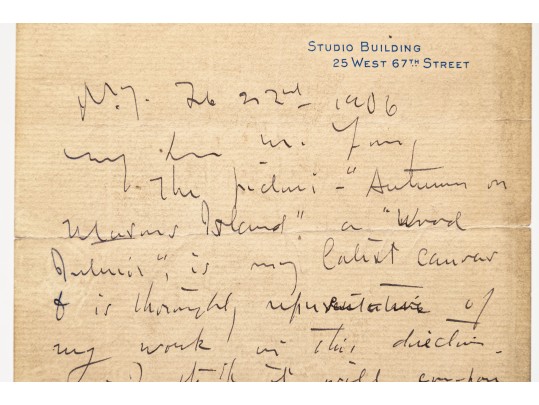 STUDIO BUILDING
25 WEST 67TH STREET
N.Y. Feb 22nd 1906
my dear Mr.
The picture - "Autumn on
Masons Island" a "Wood
Interior", is my latest canvas
& is thoroughly representative of
my work in this direction.
it will